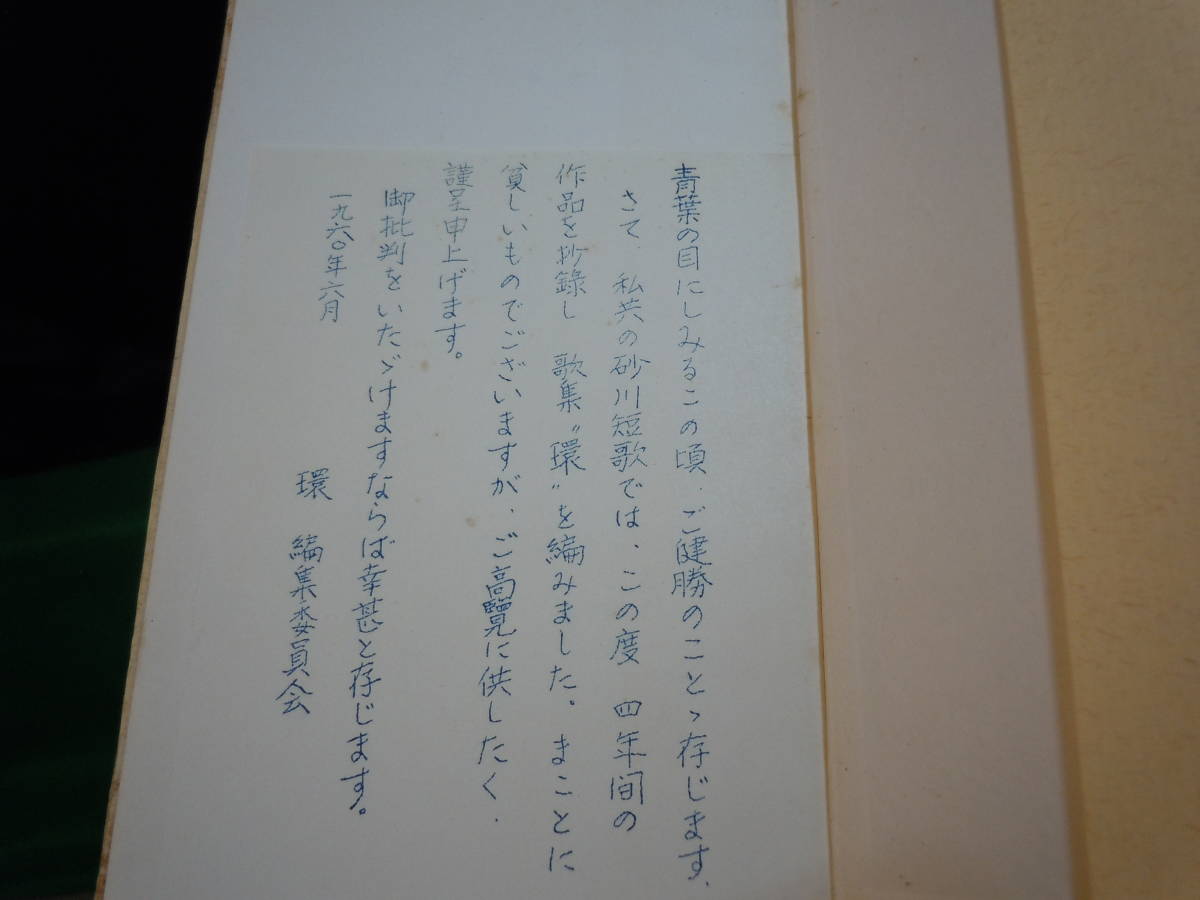 青葉の目にしみるこの頃、ご健勝のことゝ存じます、
さて、私共の砂川短歌では、この度 四年間の
作品を抄録し 歌集〝環〟を編みました。まことに
貧しいものでございますが、ご高覽に供したく、
謹呈申上げます。
御批判をいたゞけますならば幸甚と存じます。
一九六〇年六月
環 編集委員会